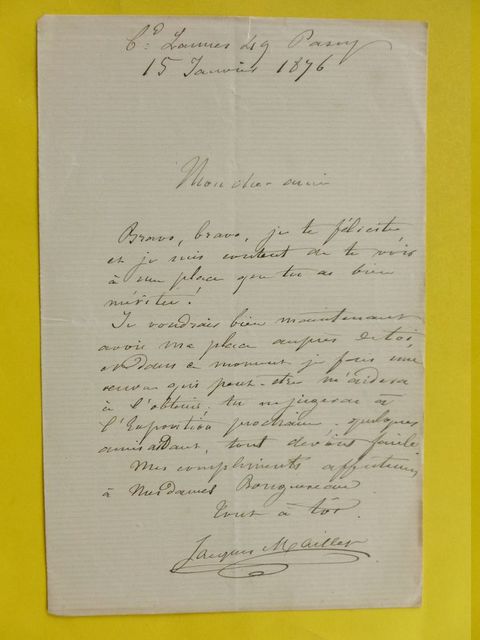 Bd Lannes 49 Passy
15 Janvier 1876
Mon cher ami
Bravo, bravo, je te félicite
et je suis content de te voir
à une place que tu as bien
méritée !
Je voudrais bien maintenant
avoir ma place auprès de toi,
et dans ce moment je fais une
œuvre qui peut-être m'aidera
à l'obtenir, tu en jugeras à
l'Exposition prochaine. quelques
amis aidant, tout devient facile
Mes compliments affectueux
à Mesdames Bouguereau
Tout à toi.
Jacques Maillet